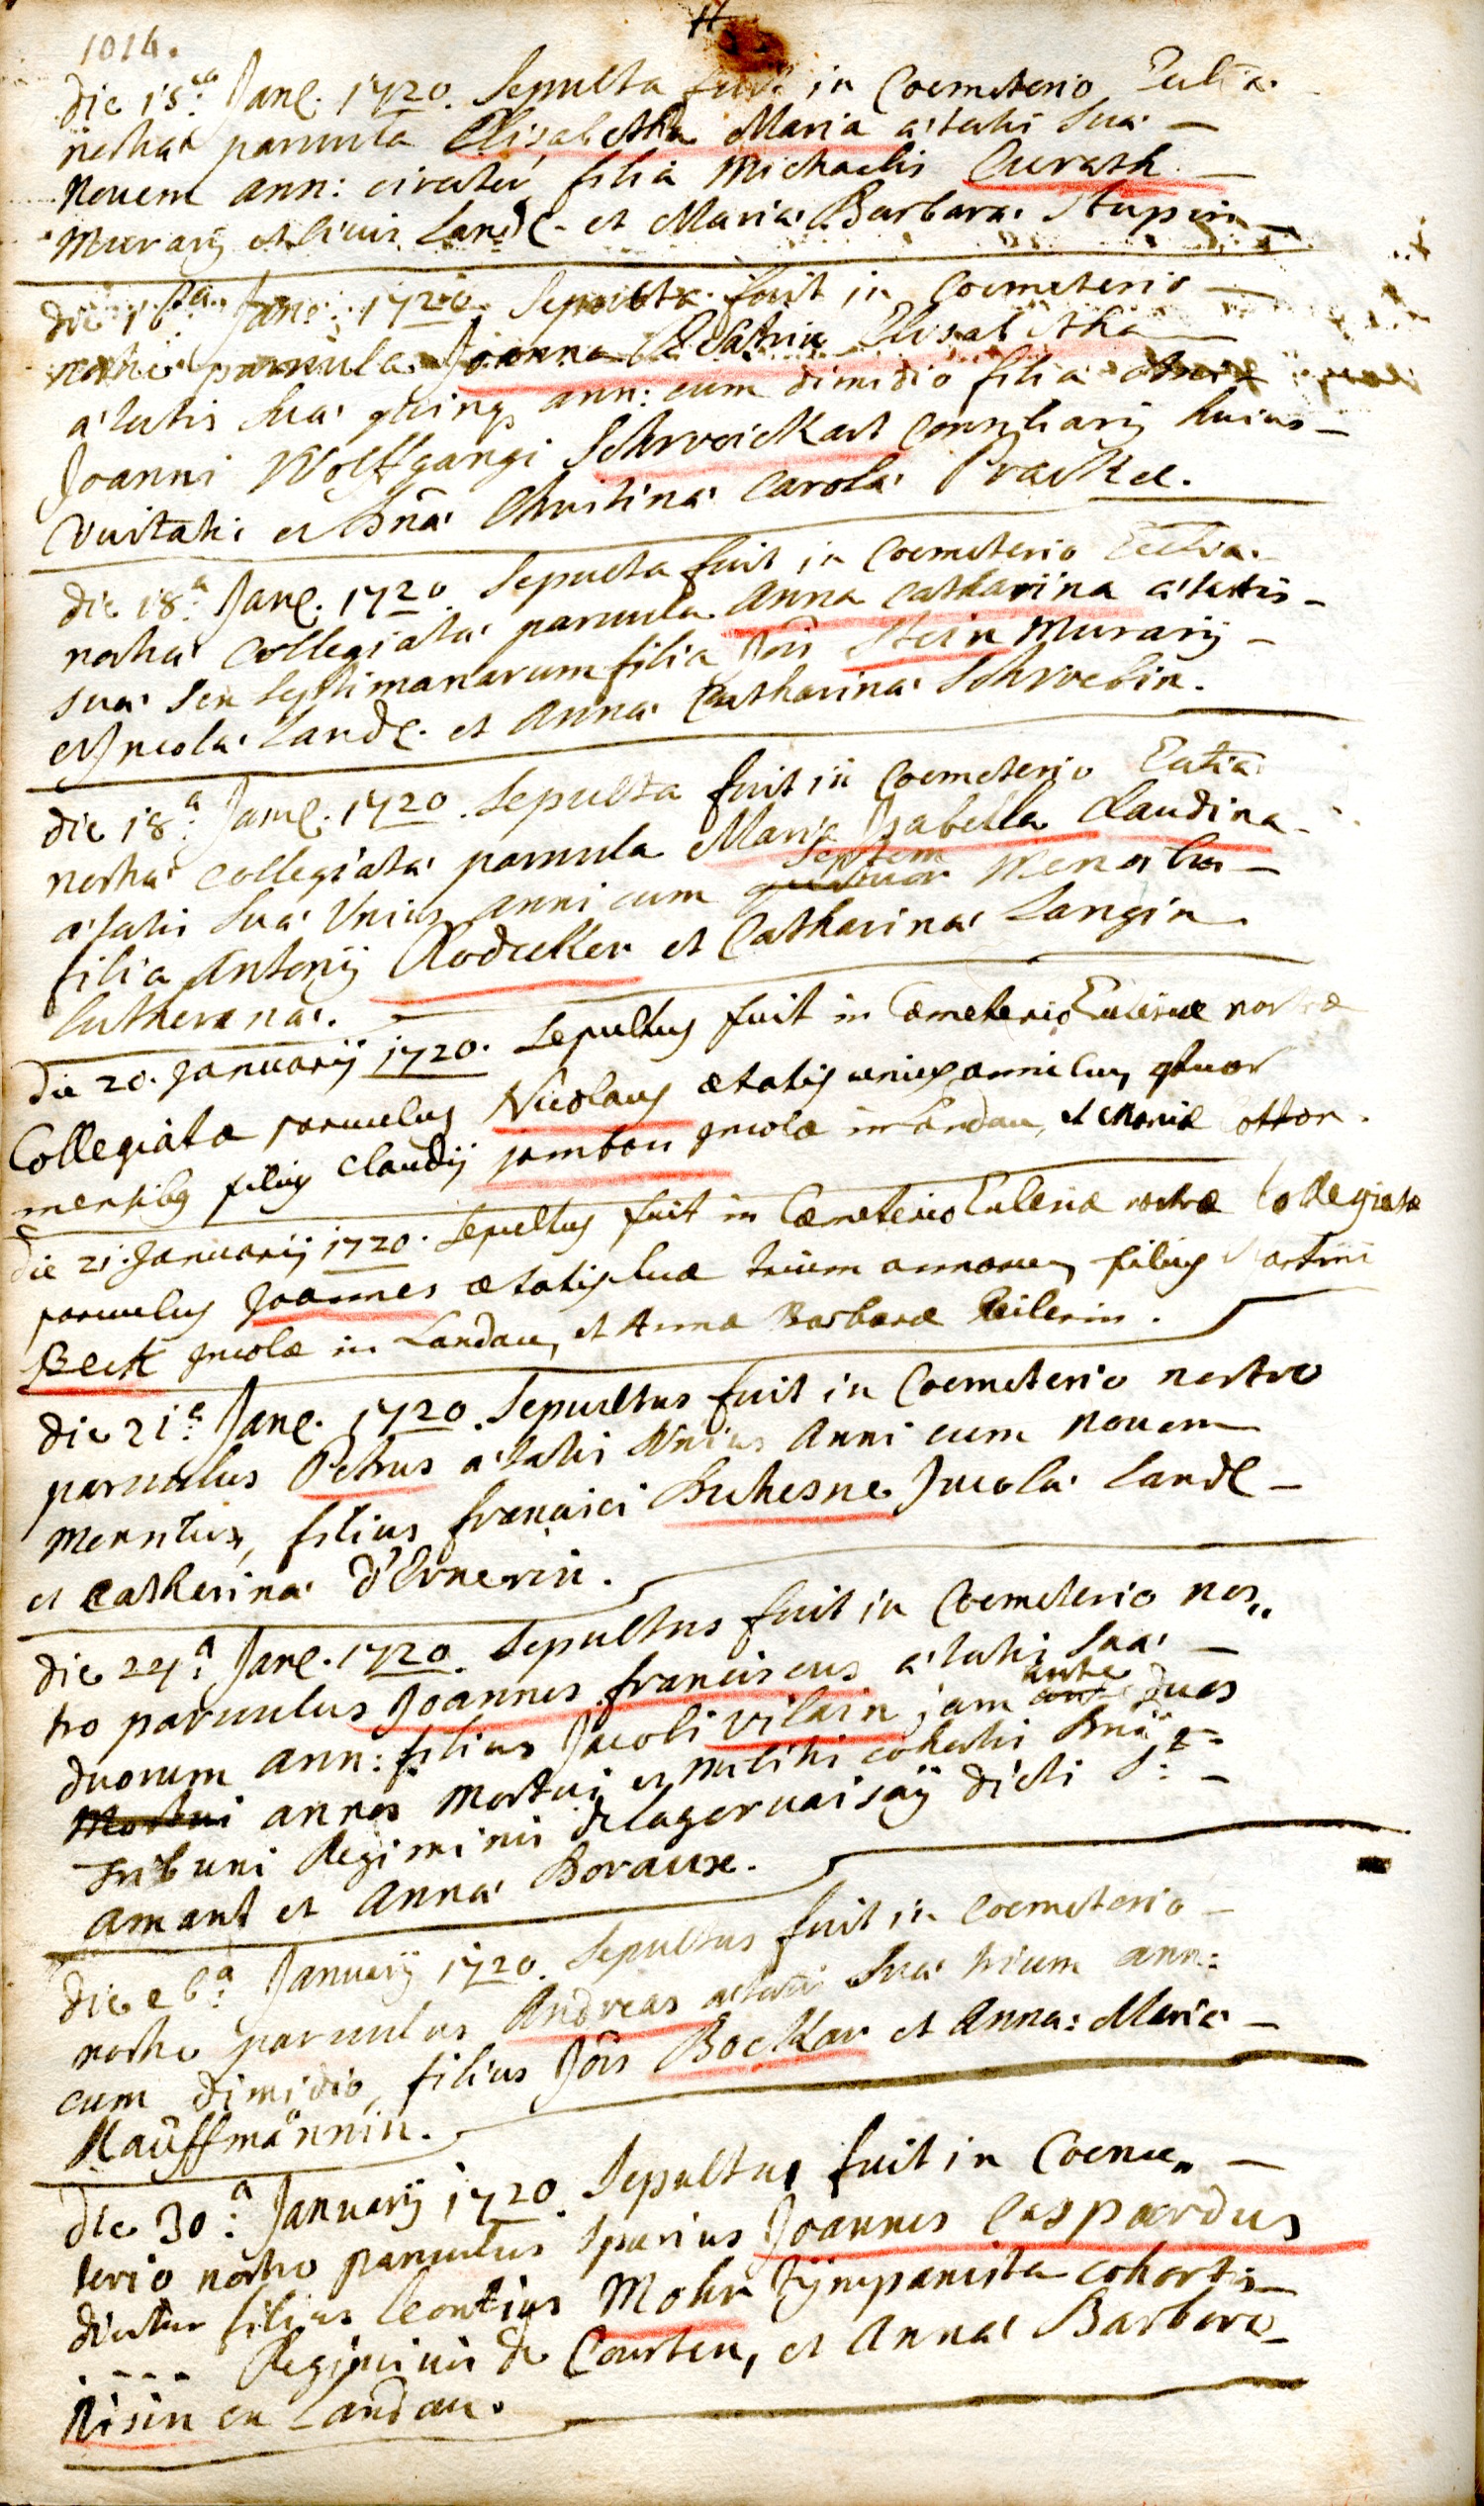 1014.
die 15.a Janl. 1720. Sepulta fuit in Coemeterio
nostra parvula Elisabetha Maria a'tatis Sua' –
Novem ann: circiter filia Michaelis Curath –
Murarij et Civis Landl. et Maria' Barbara' Stupin –
die 16.ta Janl. 1720. Sepulta fuit in Coemeterio –
nostro parvula Joanna Elisabetha
a'tatis Sua' ann: cum dimidio filia
Joanni Wolffgangi Schweickart Consiliarij huius –
Civitatis et Christina' Carola' Prackel.
die 18.a Janl. 1720. Sepulta fuit in Coemeterio
nostra' Collegiata' parvula Anna Catharina a'tatis –
sua' Sex Septimanarum filia Jois Stein Murarij –
et Incola' Landl. et Anna' Catharina' Schwebin.
die 18.a Janl. 1720. Sepulta fuit in Coemeterio
nostra' Collegiata' parvula Maria Isabella Claudina
a'tatis Sua' Unius anni cum Septem Mensibus –
filia Antonij Rodecker et Catharina' Langin
Lutherana'.
Die 20. Januarij 1720. Sepultus fuit in Cæmeterio Ecclesiæ nostræ
Collegiatæ parvulus Nicolaus ætatis unius anni cum qtuor
mensibus filius Claudij jambon Incolæ in Landau, et Mariæ otton.
Die 21. Januarij 1720. Sepultus fuit in Cæmeterio Ecclesiæ nostræ Collegiatæ
parvulus Joannes ætatis suæ trium annorum, filius Martini
Beck Incolæ in Landau, et Annæ Barbaræ Keilerin.
die 21.a Janl. 1720. Sepultus fuit in Coemeterio nostro
parvulus Petrus a'tatis Unius Anni cum novem
Mensibus, filius francisci Duchesne Incola' Landl –
et Catherina' d'Ernerin.
die 24.a Janl. 1720. Sepultus fuit in Coemeterio nos„
tro parvulus Joannes franciscus a'tatis Sua' –
duorum ann: filius Jacobi Vilain jam ante duos
Mortui annos Mortui et militis cohortis
Tribuni Regiminis delagervaisaij dicti St –
amant et Anna' Boraux.
die 26.a Januarij 1720. Sepultus fuit in Coemeterio –
nostro parvulus Andreas a'tatis Sua' trium ann:
cum dimidio, filius Jois Bockar et Anna: Maria' –
Kauffmännin.
die 30.a Januarij 1720. Sepultus fuit in Coeme„ –
terio nostro parvulus Spurius Joannes Caspardus
dicitur filius Leontius Mohr Tijmpanista cohortis –
. - - - Regiminis de Courten, et Anna' Barbara' –
Risin en Landau.